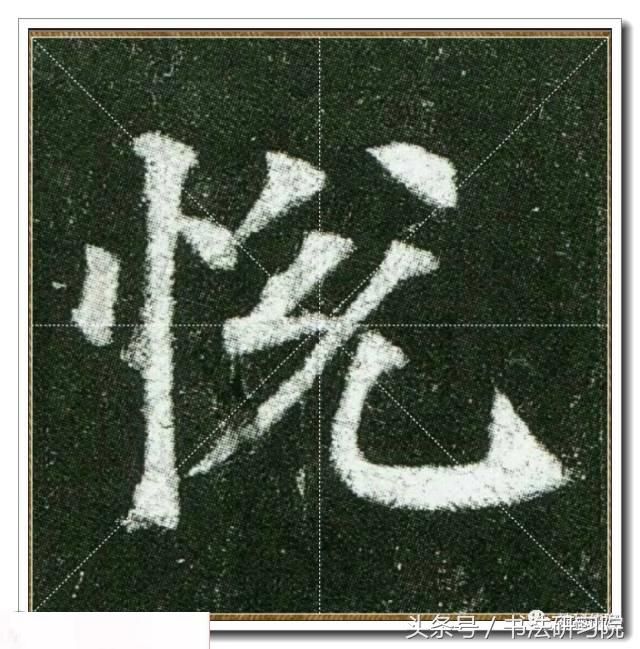 悦
头条号 / 书法研习院